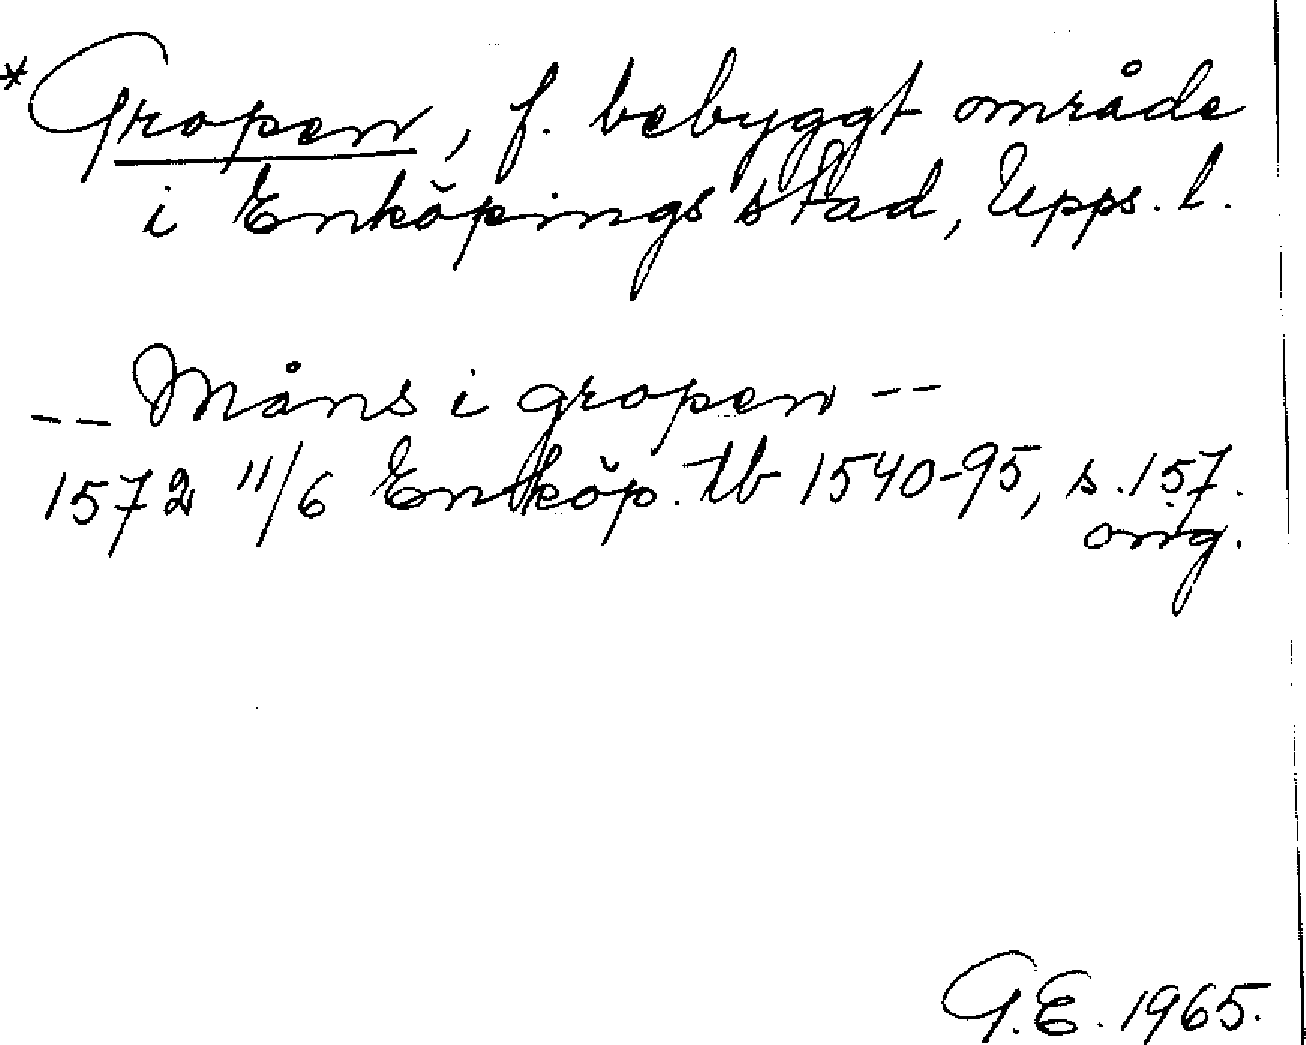 *Gropen, f. bebyggt område
i Enköpings stad, Upps. l.
-- Måns i gropen --
1572 11/6 Enköp. tb 1540-95, s. 157.
orig.
G.E. 1965.